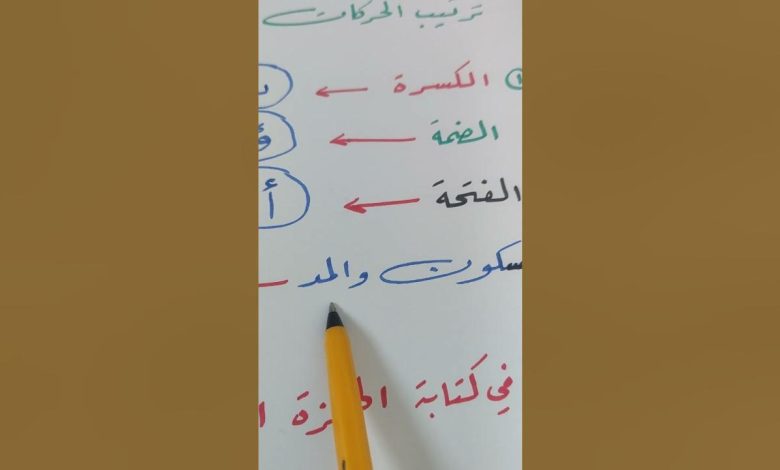 ترتيب الحركات
١ الكسرة ←
الضمة ← ؤ
الفتحة ← أ
سكون والمد
في كتابة